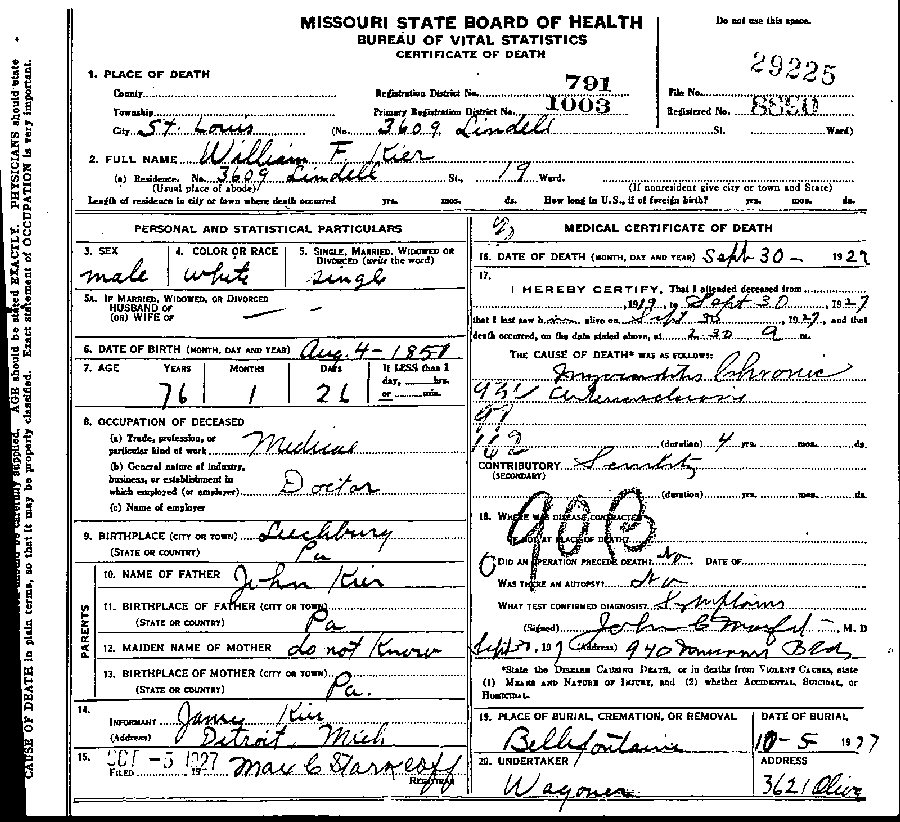 MISSOURI STATE BOARD OF HEALTH
BUREAU OF VITAL STATISTICS
CERTIFICATE OF DEATH
Do not use this space.
29225
1. PLACE OF DEATH
County
Registration District No. 791
File No.
Township
Primary Registration District No. 1003
Registered No. 8890
City St. Louis (No. 3609 Lindell St. Ward)
2. FULL NAME William F. Kier
(a) Residence. No. 3609 Lindell St., 19 Ward.
(Usual place of abode) (If nonresident give city or town and State)
Length of residence in city or town where death occurred yrs. mos. ds. How long in U.S., if of foreign birth? yrs. mos. ds.
PERSONAL AND STATISTICAL PARTICULARS
3. SEX
male
4. COLOR OR RACE
white
5. SINGLE, MARRIED, WIDOWED OR DIVORCED (write the word)
single
5A. IF MARRIED, WIDOWED, OR DIVORCED
HUSBAND OF
(OR) WIFE OF
6. DATE OF BIRTH (MONTH, DAY AND YEAR) Aug. 4 - 1851
7. AGE YEARS MONTHS DAYS If LESS than 1
day, hrs.
or min.
76 1 26
8. OCCUPATION OF DECEASED
(a) Trade, profession, or
particular kind of work Medical
(b) General nature of industry,
business, or establishment in
which employed (or employer) Doctor
(c) Name of employer
9. BIRTHPLACE (CITY OR TOWN) Leechburg
(STATE OR COUNTRY) Pa
PARENTS
10. NAME OF FATHER John Kier
11. BIRTHPLACE OF FATHER (CITY OR TOWN)
(STATE OR COUNTRY) Pa
12. MAIDEN NAME OF MOTHER do not Know
13. BIRTHPLACE OF MOTHER (CITY OR TOWN)
(STATE OR COUNTRY) Pa.
14.
INFORMANT James Kier
(Address) Detroit Mich
15.
FILED OCT -5 1927 19 Max C Starkloff
REGISTRAR
MEDICAL CERTIFICATE OF DEATH
16. DATE OF DEATH (MONTH, DAY AND YEAR) Sept 30 - 1927
17.
I HEREBY CERTIFY, That I attended deceased from
, 1919, to Sept 30, 1927
that I last saw him alive on Sept 30, 1927, and that
death occurred, on the date stated above, at 2.30 a m.
THE CAUSE OF DEATH* WAS AS FOLLOWS:
Myocarditis Chronic
Arteriosclerosis
97
162
(duration) 4 yrs. mos. ds.
CONTRIBUTORY Senility
(SECONDARY)
(duration) yrs. mos. ds.
90B
18. WHERE WAS DISEASE CONTRACTED
IF NOT AT PLACE OF DEATH?
DID AN OPERATION PRECEDE DEATH? No DATE OF
WAS THERE AN AUTOPSY? No
WHAT TEST CONFIRMED DIAGNOSIS? Symptoms
(Signed) John C , M. D
Sept 30, 19 (Address) 940 Bldg
*State the DISEASE CAUSING DEATH, or in deaths from VIOLENT CAUSES, state
(1) MEANS AND NATURE OF INJURY, and (2) whether ACCIDENTAL, SUICIDAL, or
HOMICIDAL.
19. PLACE OF BURIAL, CREMATION, OR REMOVAL
Bellefontaine
DATE OF BURIAL
10-5 1927
20. UNDERTAKER
Wagoner
ADDRESS
3621 Olive
AGE should be stated EXACTLY. PHYSICIANS should state
CAUSE OF DEATH in plain terms, so that it may be properly classified. Exact statement of OCCUPATION is very important.